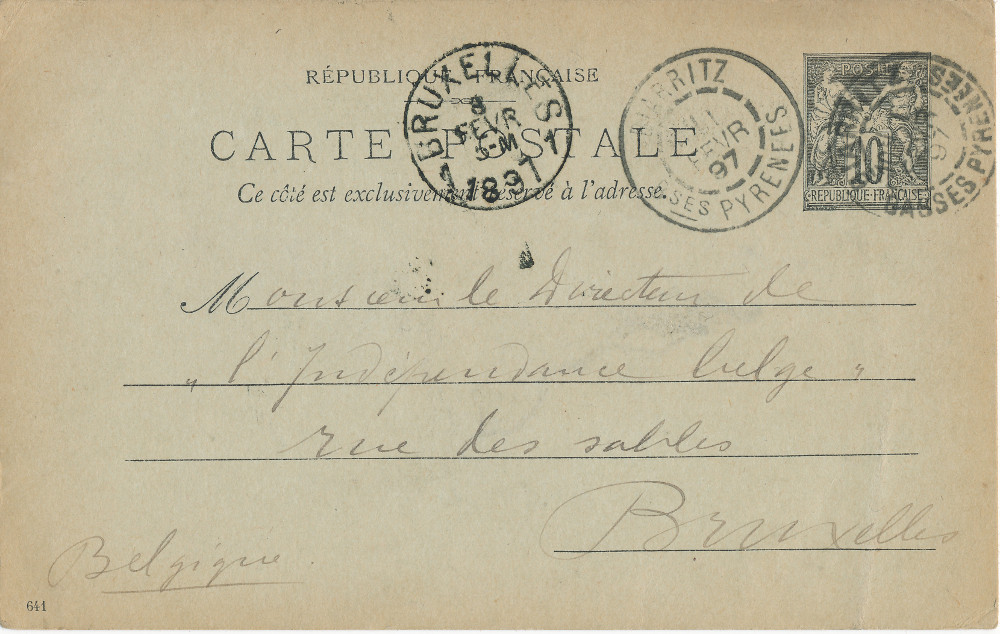 RÉPUBLIQUE FRANÇAISE
CARTE POSTALE
Ce côté est exclusivement réservé à l'adresse.
BRUXELLES 1
8
FEVR
5-M
1897
BIARRITZ
FEVR
97
BASSES PYRENEES
POSTES
10
REPUBLIQUE FRANÇAISE
BASSES PYRENEES
Monsieur le Directeur de
„ l'Indépendance belge „
rue des sables
Bruxelles
Belgique
641